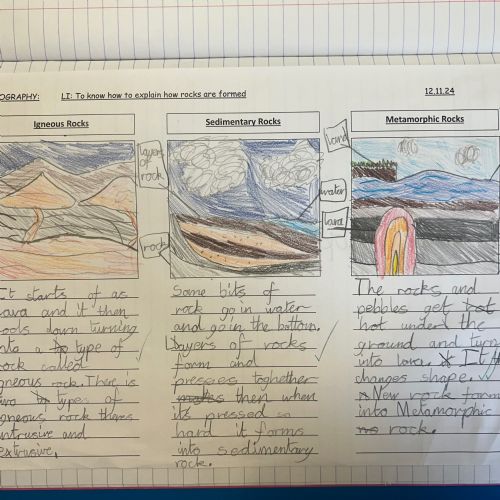 OGRAPHY: LI: To know how to explain how rocks are formed 12.11.24
Igneous Rocks
Sedimentary Rocks
Metamorphic Rocks
layers
of
rock
rock
land
water
lava
It starts of as
lava and it then
ools down turning
nto a type of
rock called
gneous rock. There is
wo types of
gneous rock theres
intrusive and
extrusive.
Some bits of
rock go in water
and go in the bottom.
Layers of rocks
form and
presses toghether
then when
its pressed so
hard it forms
into sedimentary
rock.
The rocks and
pebbles get
hot under the
ground and turn
into lava. It
changes shape.
New rock forms
into Metamorphic
rock.